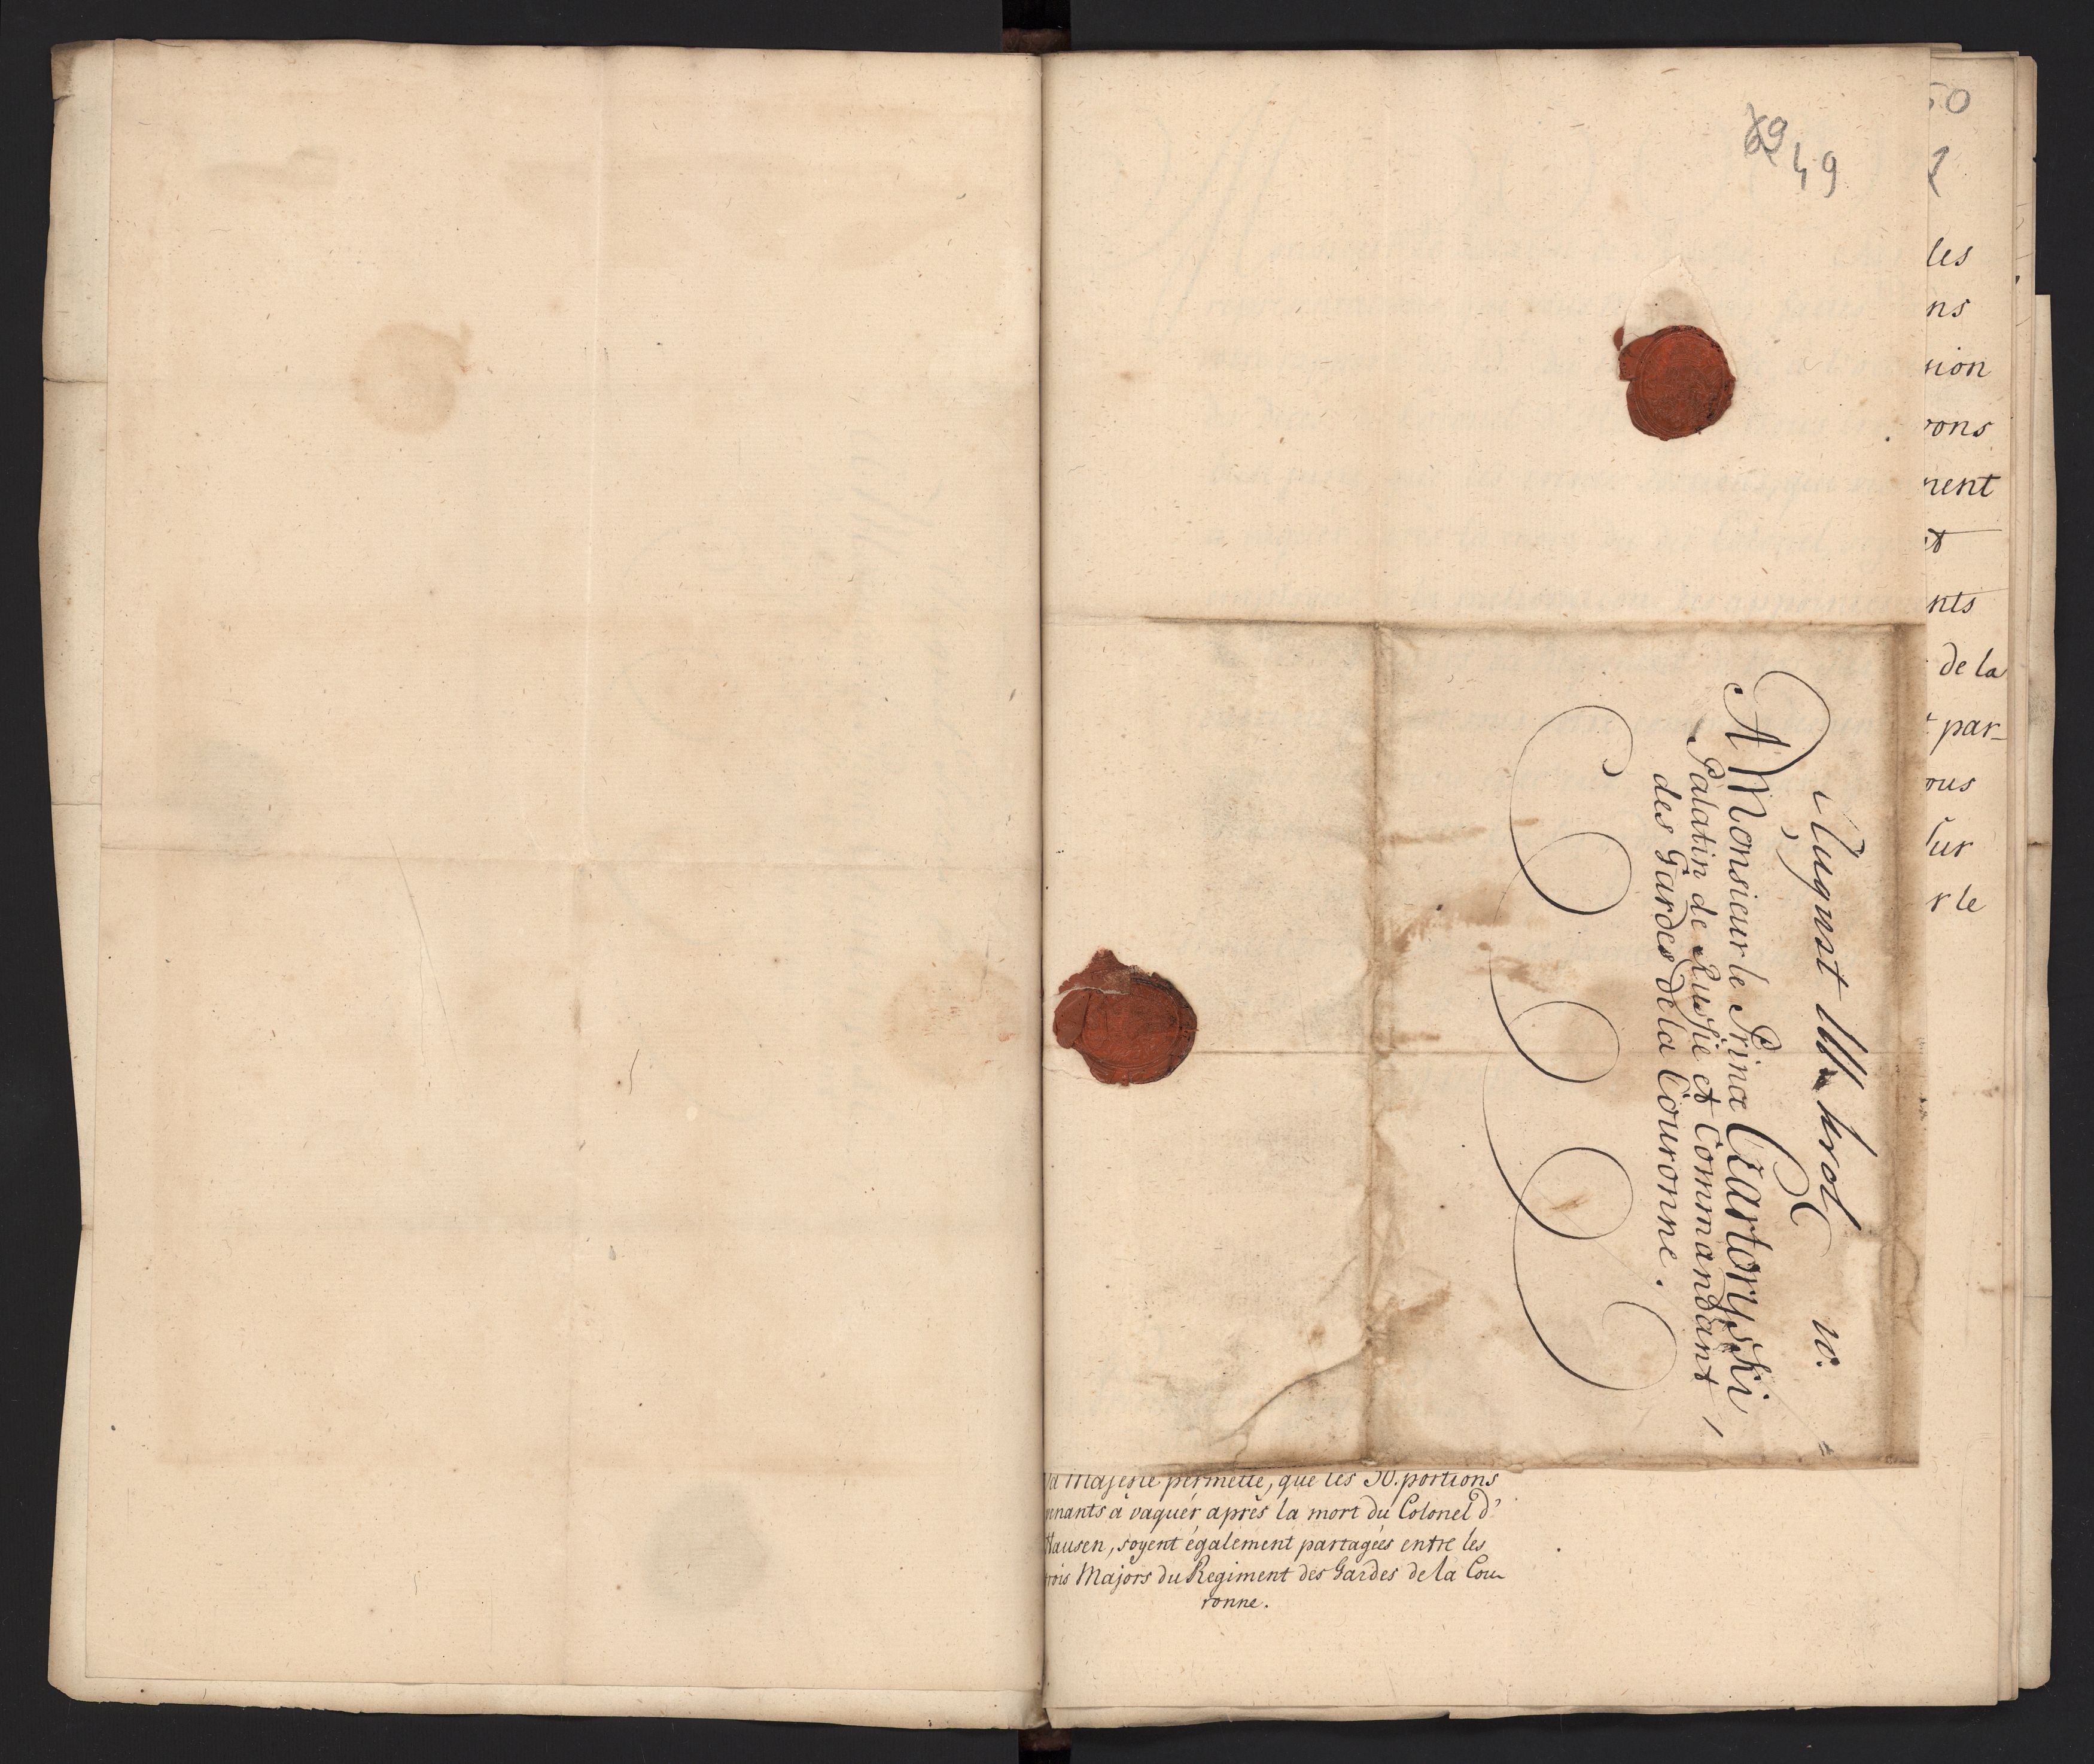 49
August III król
A Monsieur le Prince Czartoryski
Palatin de Russie et Commandant
des Gardes de la Couronne.
Sa Majesté permette, que les 50. portions
venants à vaquér après la mort du Colonel d'
Hausen, soyent également partagées entre les
trois Majors du Regiment des Gardes de la Cou-
ronne.
50
2
les
ns
sion
rons
ment
et
nts
de la
par-
ous
sur
r le